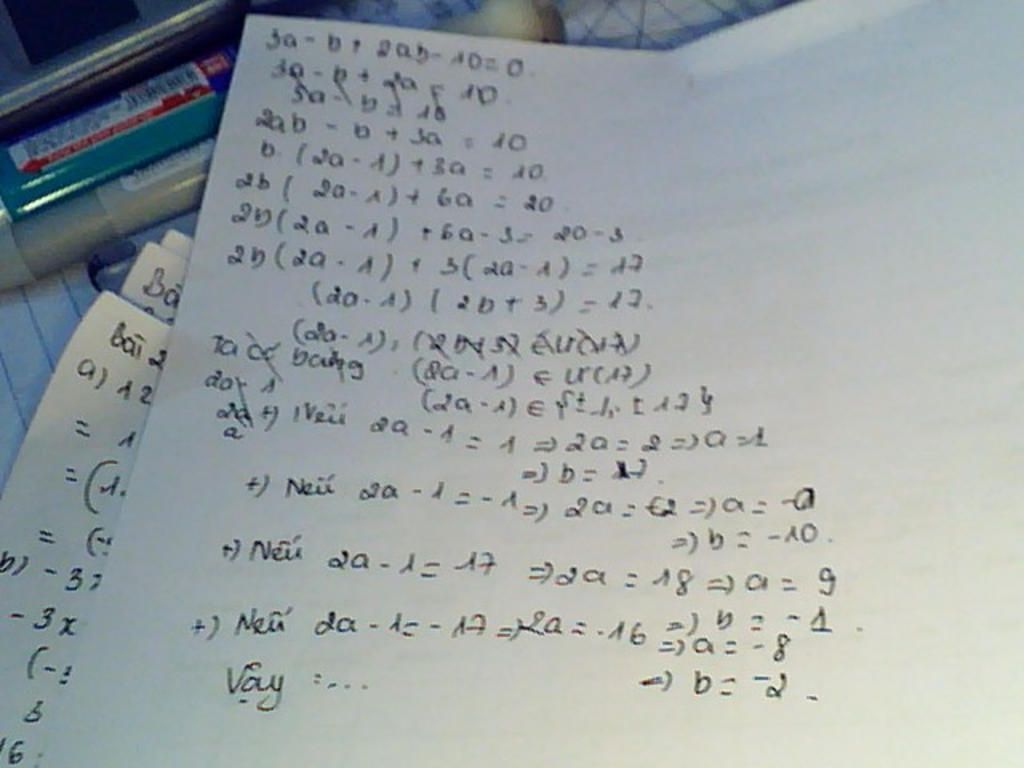 3a - b + 2ab - 10 = 0.
3a - b + 2a = 10.
3a - b = 10
2ab - b + 3a = 10
b. (2a - 1) + 3a = 10.
2b ( 2a - 1) + 6a = 20.
2b (2a - 1) + 6a - 3 = 20 - 3.
2b (2a - 1) + 3(2a - 1) = 17
(2a - 1) ( 2b + 3) = 17.
(2a - 1), (2b + 3) ∈ Ư(17)
Ta có bảng (2a - 1) ∈ Ư(17)
2a - 1 (2a - 1) ∈ {± 1, ± 17}
2a
a
+) Nếu 2a - 1 = 1 => 2a = 2 => a = 1
=> b = 17.
+) Nếu 2a - 1 = -1 => 2a = => a =
=> b = -10.
+) Nếu 2a - 1 = 17 => 2a = 18 => a = 9
=> b = -1.
+) Nếu 2a - 1 = -17 => 2a = -16 => a = -8
=> b = -2.
Vậy :...
Bà
Bài 2
a) 12
= 1
= (1.
= (-
b) -3
- 3x
(-
3
16.